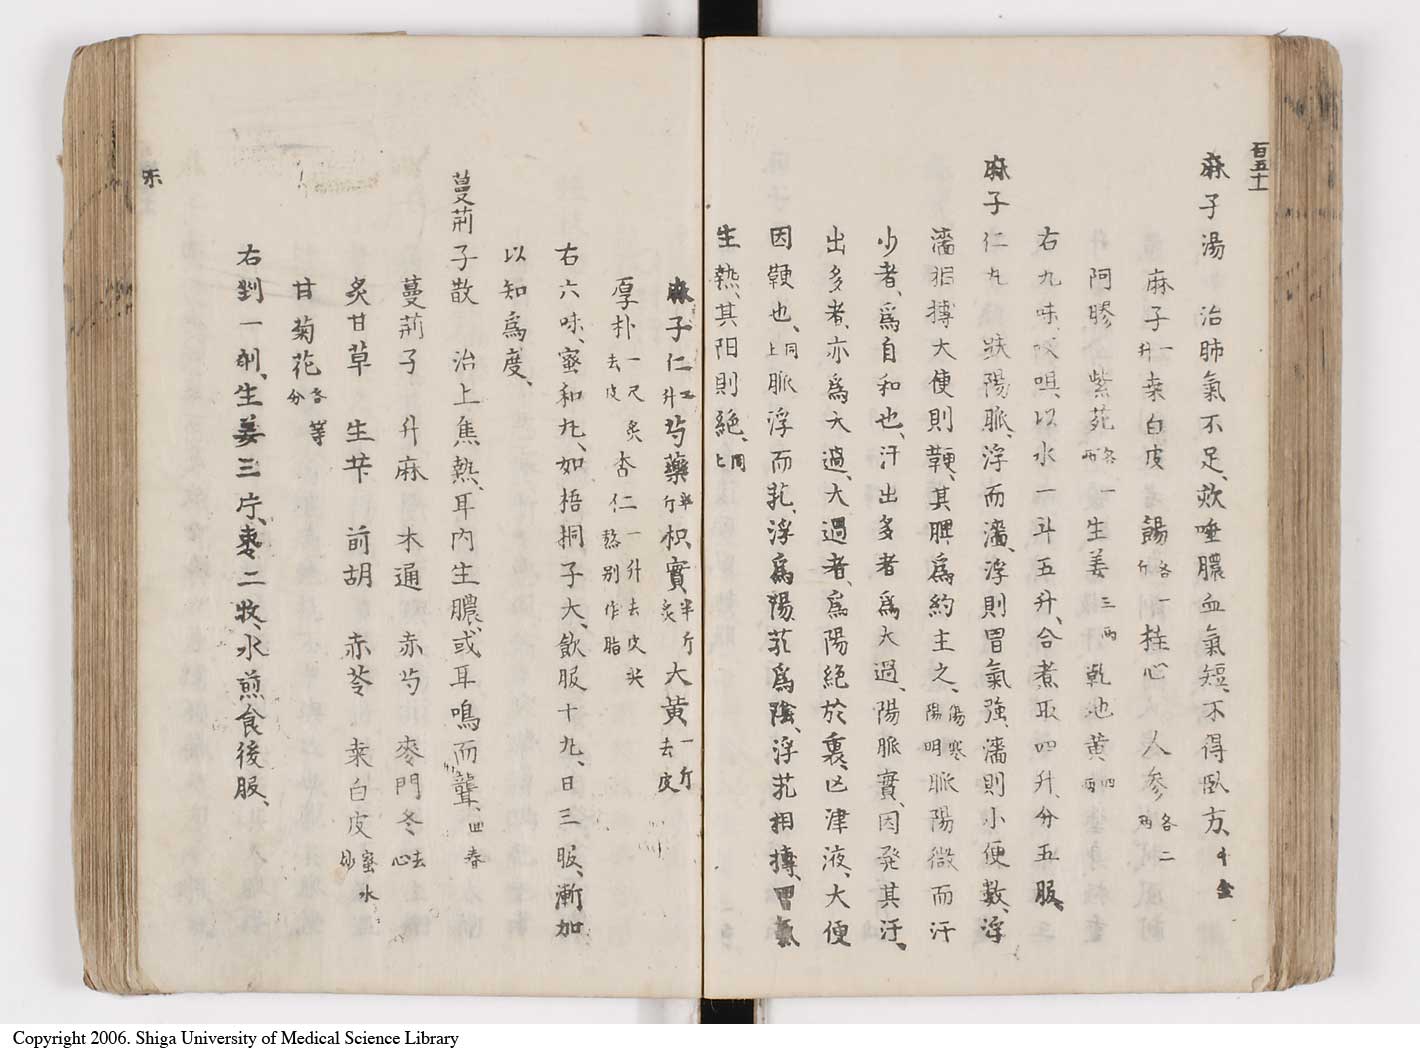 百五十
麻子湯 治肺氣不足、欬唾膿血氣短、不得臥方、千金
麻子一升桒白皮 餳各一斤 桂心 人参各二两
阿膠 紫苑各一两 生姜三两 乾地黄四两
右九味、㕮咀、以水一斗五升、合煮取四升、分五服、
麻子仁丸 趺陽脈、浮而濇、浮則胃氣強、濇則小便数、浮
濇相摶大便則鞕、其脾爲約主之、傷寒陽明脈陽微而汗
少者、爲自和也、汗出多者爲大過、陽脈實、因発其汗、
出多者、亦爲大過、大過者、爲陽絶於裏、亡津液、大便
因鞕也、同上脈浮而芤、浮爲陽、芤爲陰、浮芤相摶、胃氣
生熱、其阳則絶、同上
麻子仁二升芍藥半斤枳實半斤炙大黄一斤去皮
厚朴一尺炙去皮杏仁一升去皮尖熬別作脂
右六味、蜜和丸、如梧桐子大、飲服十丸、日三服、漸加
以知爲度、
蔓荊子散 治上焦熱、耳內生膿、或耳鳴而聾、回春
蔓荊子 升麻 木通 赤芍 麥門冬去心
炙甘草 生芐 前胡 赤苓 桒白皮蜜水炒
甘菊花各等分
右剉一剤、生姜三片、棗二枚、水煎食後服、
Copyright 2006. Shiga University of Medical Science Library